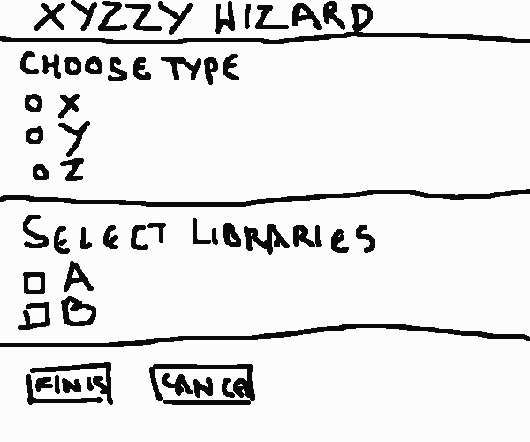 XYZZY WIZARD
CHOOSE TYPE
X
Y
Z
SELECT LIBRARIES
A
B
FINIS
CANCE